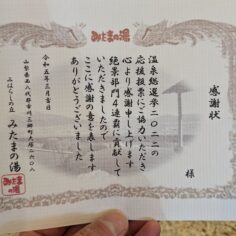 みたまの湯
感謝状
様
温泉総選挙2022の
応援投票にご協力いただき
心より感謝申し上げます
絶景部門4連覇に貢献して
いただきましたので
ここに感謝の意を表します
ありがとうございました
令和五年三月吉日
山梨県西八代郡市川三郷町大塚二六〇八
みはらしの丘 みたまの湯
みたまの湯